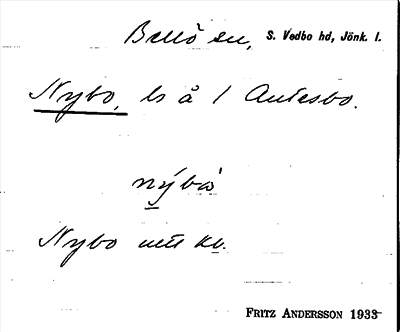 Bellö sn, S. Vedbo hd, Jönk. l.
Nybo, ls å 1 Antesbo.
nýbo
Nybo
FRITZ ANDERSSON 1933